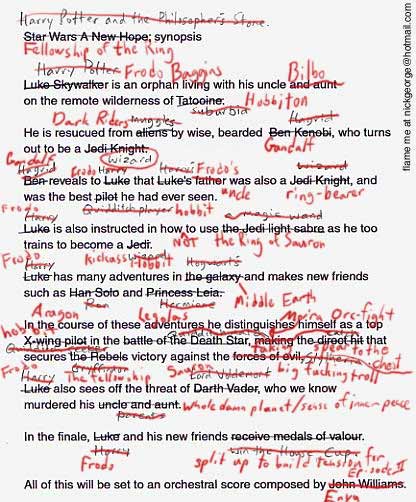 Harry Potter and the Philosopher's Stone.
Star Wars A New Hope; synopsis
Fellowship of the Ring
Harry Potter Frodo Baggins Bilbo
Luke Skywalker is an orphan living with his uncle and aunt
on the remote wilderness of Tatooine. Hobbiton
suburbia
Dark Riders muggles Hagrid
He is resucued from aliens by wise, bearded Ben Kenobi, who turns
out to be a Jedi Knight. Gandalf
Gandalf wizard
Hagrid Frodo Harry Harris Frodo's wizard
Ben reveals to Luke that Luke's father was also a Jedi Knight, and
was the best pilot he had ever seen. uncle ring-bearer
Frodo Quidditch player hobbit
Harry magic wand
Luke is also instructed in how to use the Jedi light sabre as he too
trains to become a Jedi. NOT the Ring of Sauron
Frodo Kickass wizard Hobbit
Harry Hogwarts
Luke has many adventures in the galaxy and makes new friends
such as Han Solo and Princess Leia. Middle Earth
Ron Hermione
Aragon Legolas Moria Orc-fight
In the course of these adventures he distinguishes himself as a top
hobbit
X-wing pilot in the battle of the Death Star, making the direct hit that
taking spear to the
secures the Rebels victory against the forces of evil, Slytherin chest
Frodo Gryffindor Sauron Lord Voldemort big fucking troll
Harry The fellowship
Luke also sees off the threat of Darth Vader, who we know
murdered his uncle and aunt. whole damn planet/sense of inner-peace
parents
In the finale, Luke and his new friends receive medals of valour.
Harry win the House Cup
Frodo split up to build tension for
Episode II
All of this will be set to an orchestral score composed by John Williams.
Enya
flame me at nickgeorge@hotmail.com